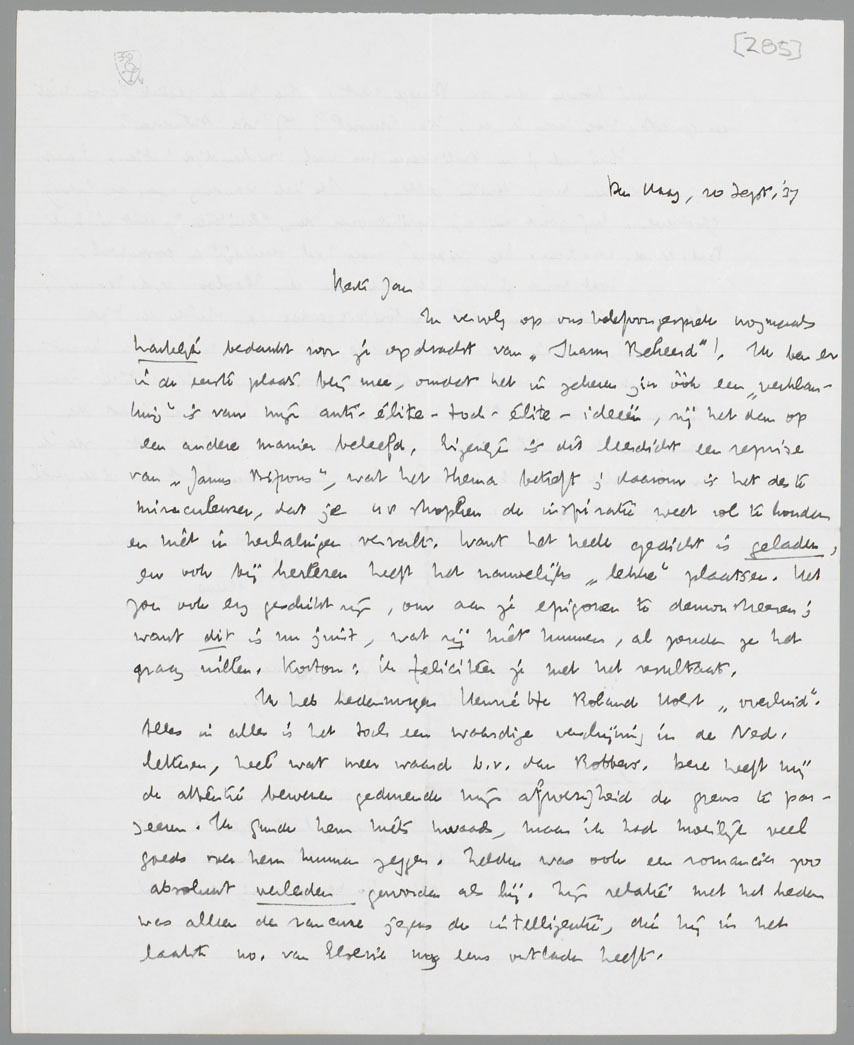 [285]
Den Haag, 20 Sept. '37
Beste Jan
In vervolg op ons telefoongesprek nogmaals
hartelijk bedankt voor je opdracht van „ Beheerd"! Ik ben er
in de eerste plaats blij mee, omdat het in zekeren zin óók een „verklan-
king" is van mijn anti-élite-toch-élite-ideeën, zij het dan op
een andere manier beleefd. Eigenlijk is dit leerdicht een reprise
van „Janus Bifrons", wat het thema betreft; daarom is het des te
miraculeuzer, dat je strophen de inspiratie weet vol te houden
en niet in herhalingen vervalt. Want het heele gedicht is geladen,
en ook bij herlezen heeft het nauwelijks „lekke" plaatsen. Het
zou ook erg geschikt zijn, om aan je epigonen te demonstreeren;
want dit is nu juist, wat zij niet kunnen, al zouden ze het
graag willen. Kortom: ik feliciteer je met het resultaat.
Ik heb hedenmorgen Henriëtte Roland Holst „overluid".
Alles in alles is het toch een waardige verschijning in de Ned.
letteren, heel wat meer waard b.v. dan Robbers. Deze heeft mij
de attentie bewezen gedurende mijn afwezigheid de grens te pas-
seeren. Ik gunde hem niets kwaads, maar ik had moeilijk veel
goeds van hem kunnen zeggen. Zelden was ook een romancier zoo
absoluut verleden geworden als hij. Zijn relatie met het heden
was alleen de rancune jegens de intelligentie, die hij in het
laatste no. van Elsevier nog eens ontladen heeft.